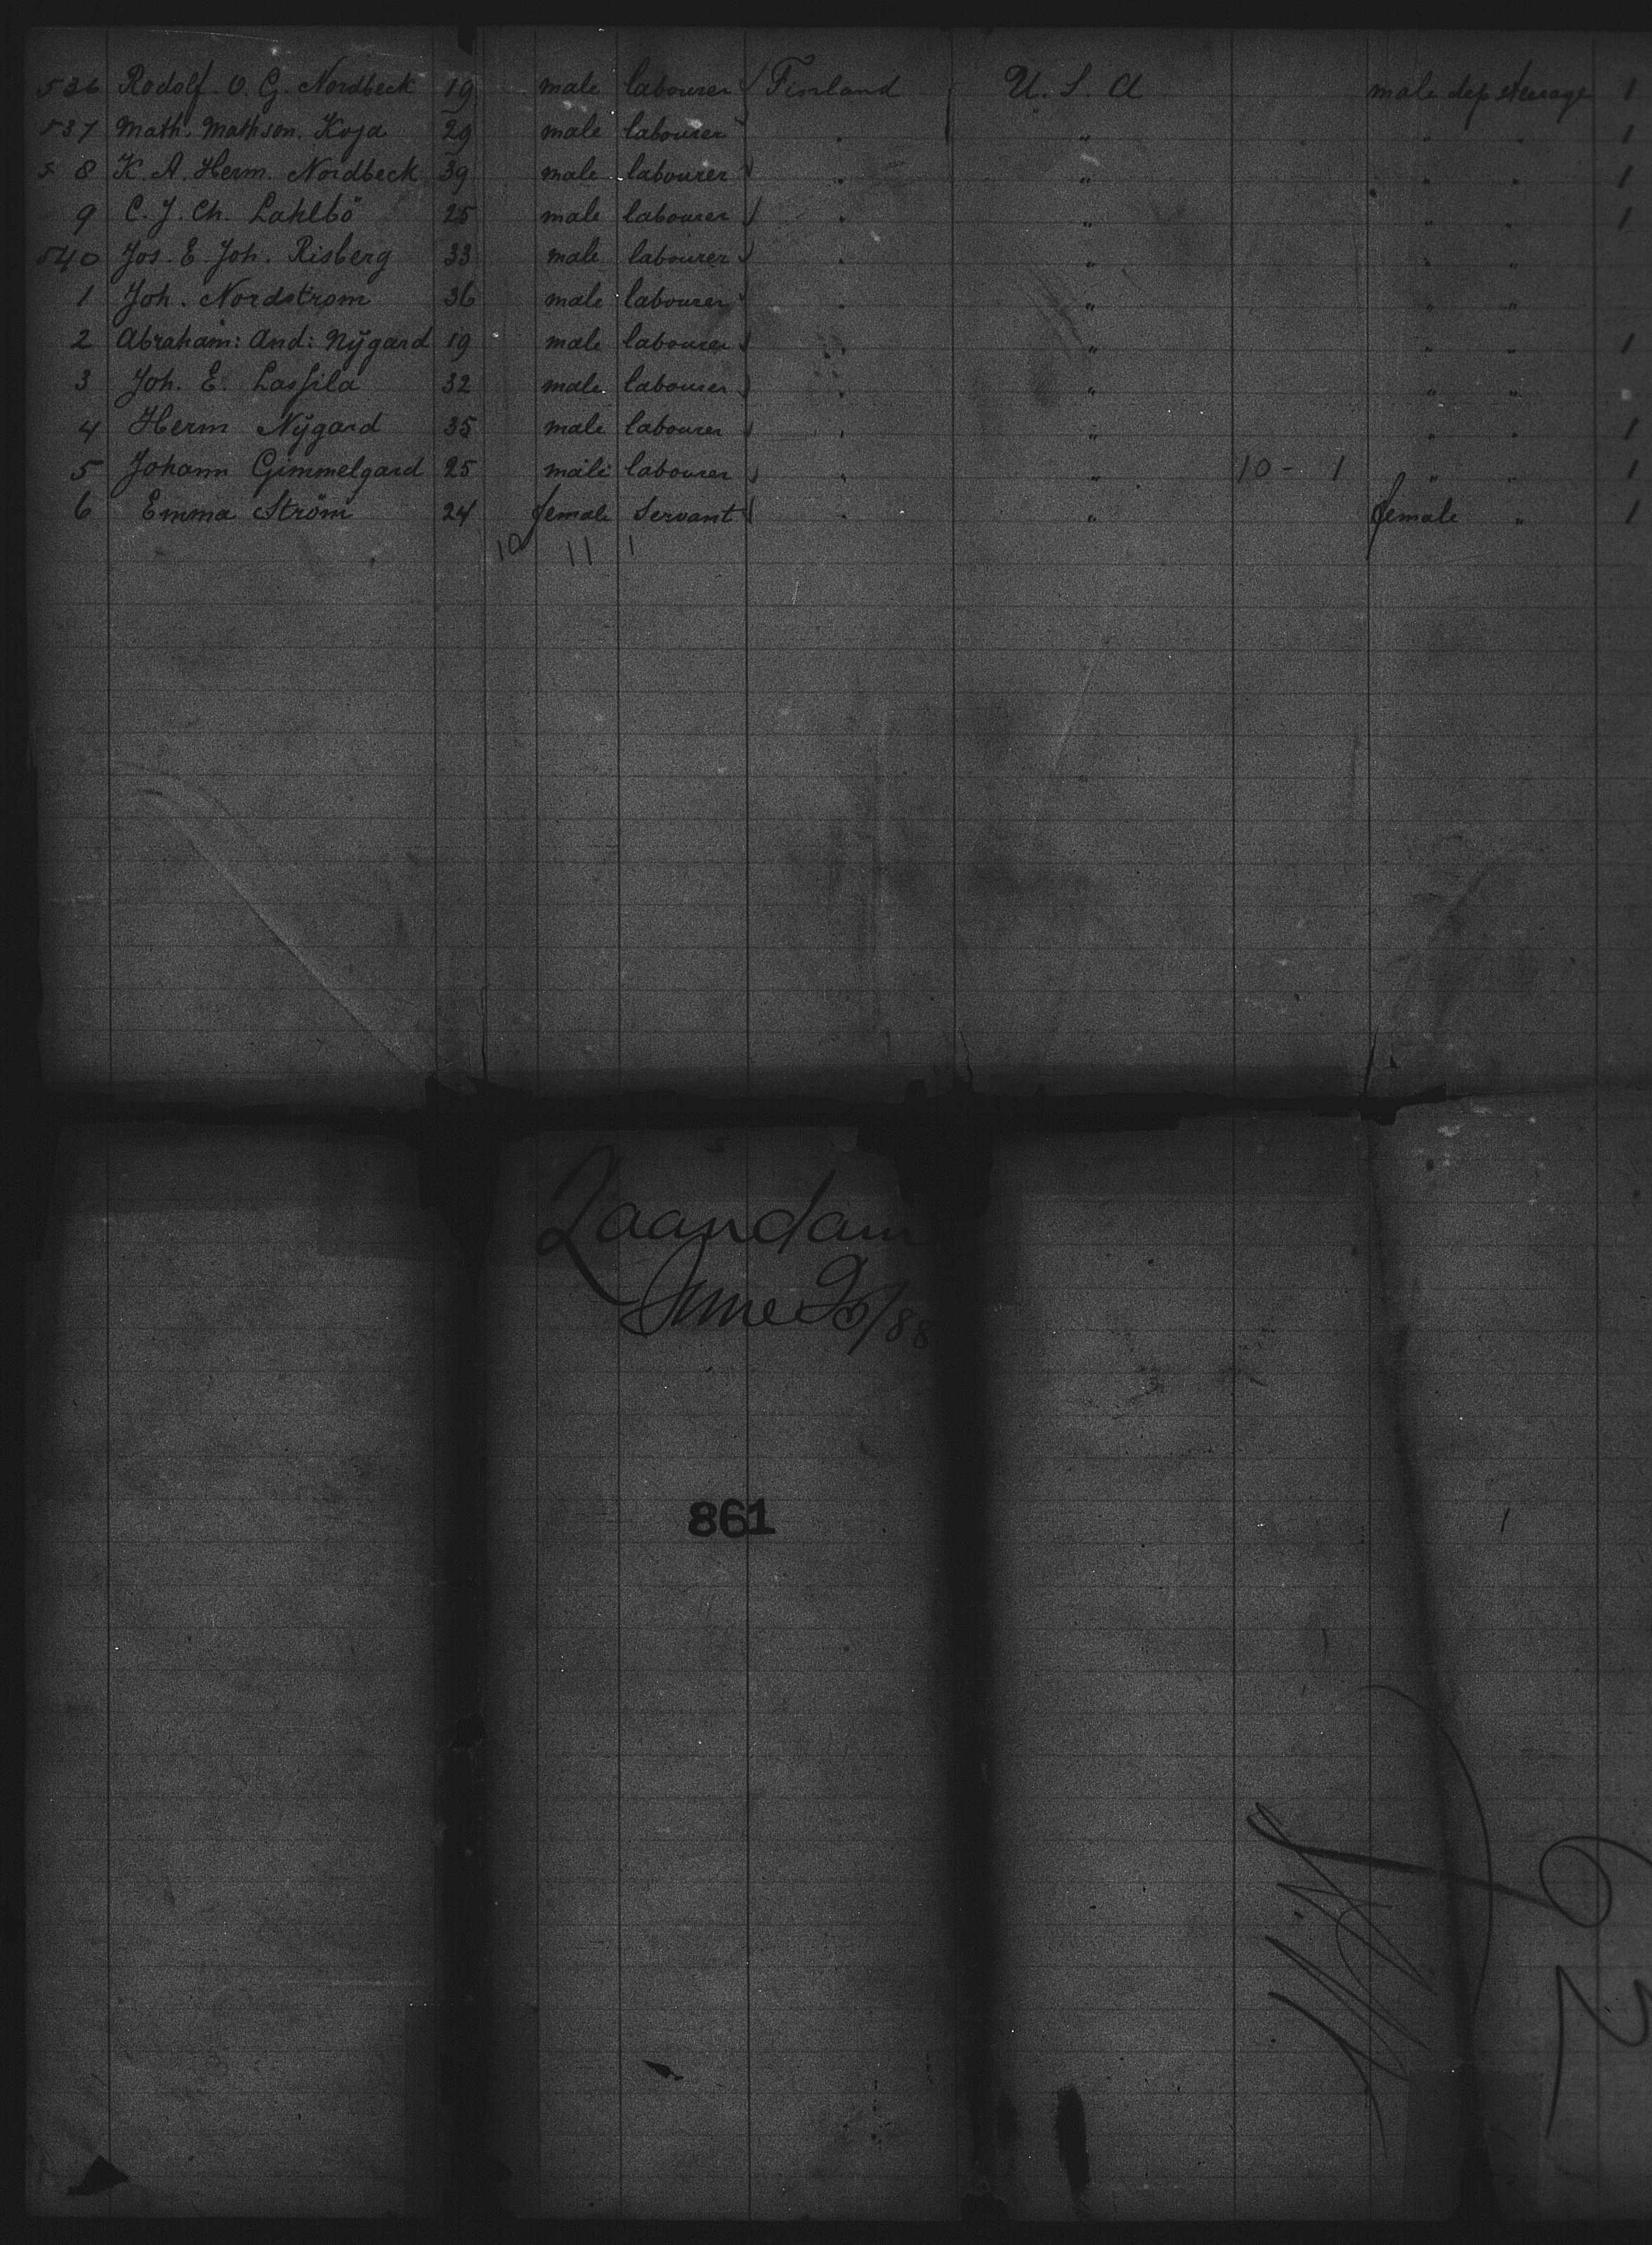 536 Rodolf O. G. Nordbeck 19 male labourer Finland U. S. A male dep steerage 1
537 Math. Mathson. Koja 29 male labourer " " " " 1
5 8 K. A. Herm. Nordbeck 39 male labourer " " " " 1
9 C. J. Ch. Lahlbö 25 male labourer " " " " 1
540 Jos. E. Joh. Risberg 33 male labourer " " " "
1 Joh. Nordstrom 36 male labourer " " " "
2 Abraham: And: Nÿgard 19 male labourer " " " " 1
3 Joh. E. Lassila 32 male labourer " " " "
4 Herm Nÿgard 35 male labourer " " " " 1
5 Johann Gimmelgard 25 male labourer " " 10 - 1 " " 1
6 Emma Ström 24 female Servant " " female " 1
10 11 1
Zaandam
June /88
861